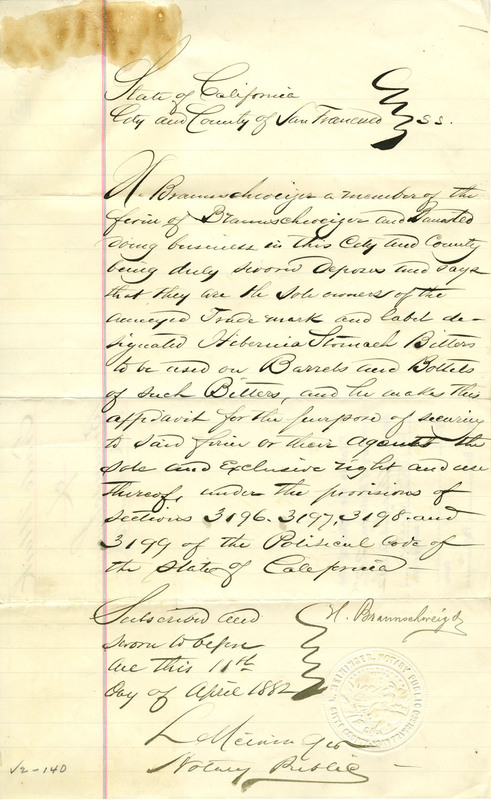 State of California
City and County of San Francisco } ss.
H. Braunschweiger a member of the
firm of Braunschweiger and
doing business in this City and County
being duly sworn Deposes and says
that they are the sole owners of the
annexed Trade mark and label de-
signated Hibernia Stomach Bitters
to be used on Barrels and Bottels
of such Bitters, and he makes this
affidavit for the purpose of securing
to said firm or their agents the
sole and Exclusive right and use
thereof, under the provisions of
sections 3196. 3197, 3198. and
3199 of the Political Code of
the State of California –
Subscribed and
sworn to before
me this 11th
Day of April 1882
H. Braunschweig
L Meininger
Notary Public –
NOTARY PUBLIC
V2-140